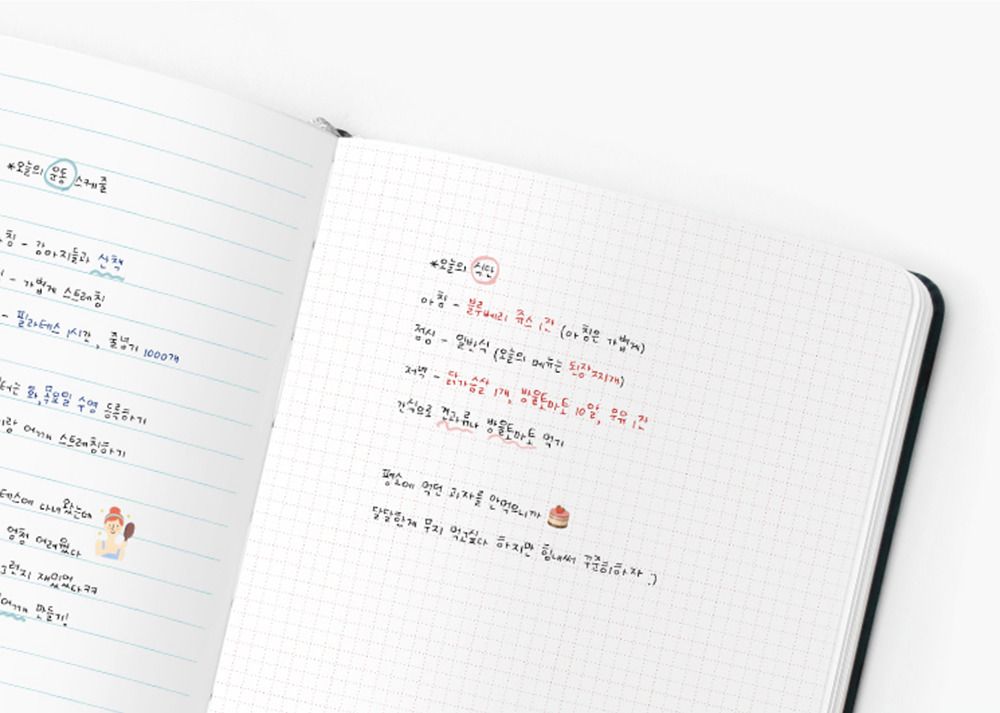 *오늘의 운동 스케줄
침 - 강아지들과 산책
- 가볍게 스트레칭
- 필라테스 1시간, 줄넘기 1000개
터는 화,목요일 수영 등록하기
이랑 어깨 스트레칭하기
테스에 다녀왔는데
엄청 어려웠다
그런지 재밌었다ㅋㅋ
어깨 만들기!
*오늘의 식단
아침 - 블루베리 쥬스 1잔 (아침은 가볍게)
점심 - 일반식 (오늘의 메뉴는 된장찌개)
저녁 - 닭가슴살 1개, 방울토마토 10알, 우유 1잔
간식으로 견과류나 방울토마토 먹기
평소에 먹던 과자를 안먹으니까
달달한게 무지 먹고싶다 하지만 힘내서 꾸준히하자 :)